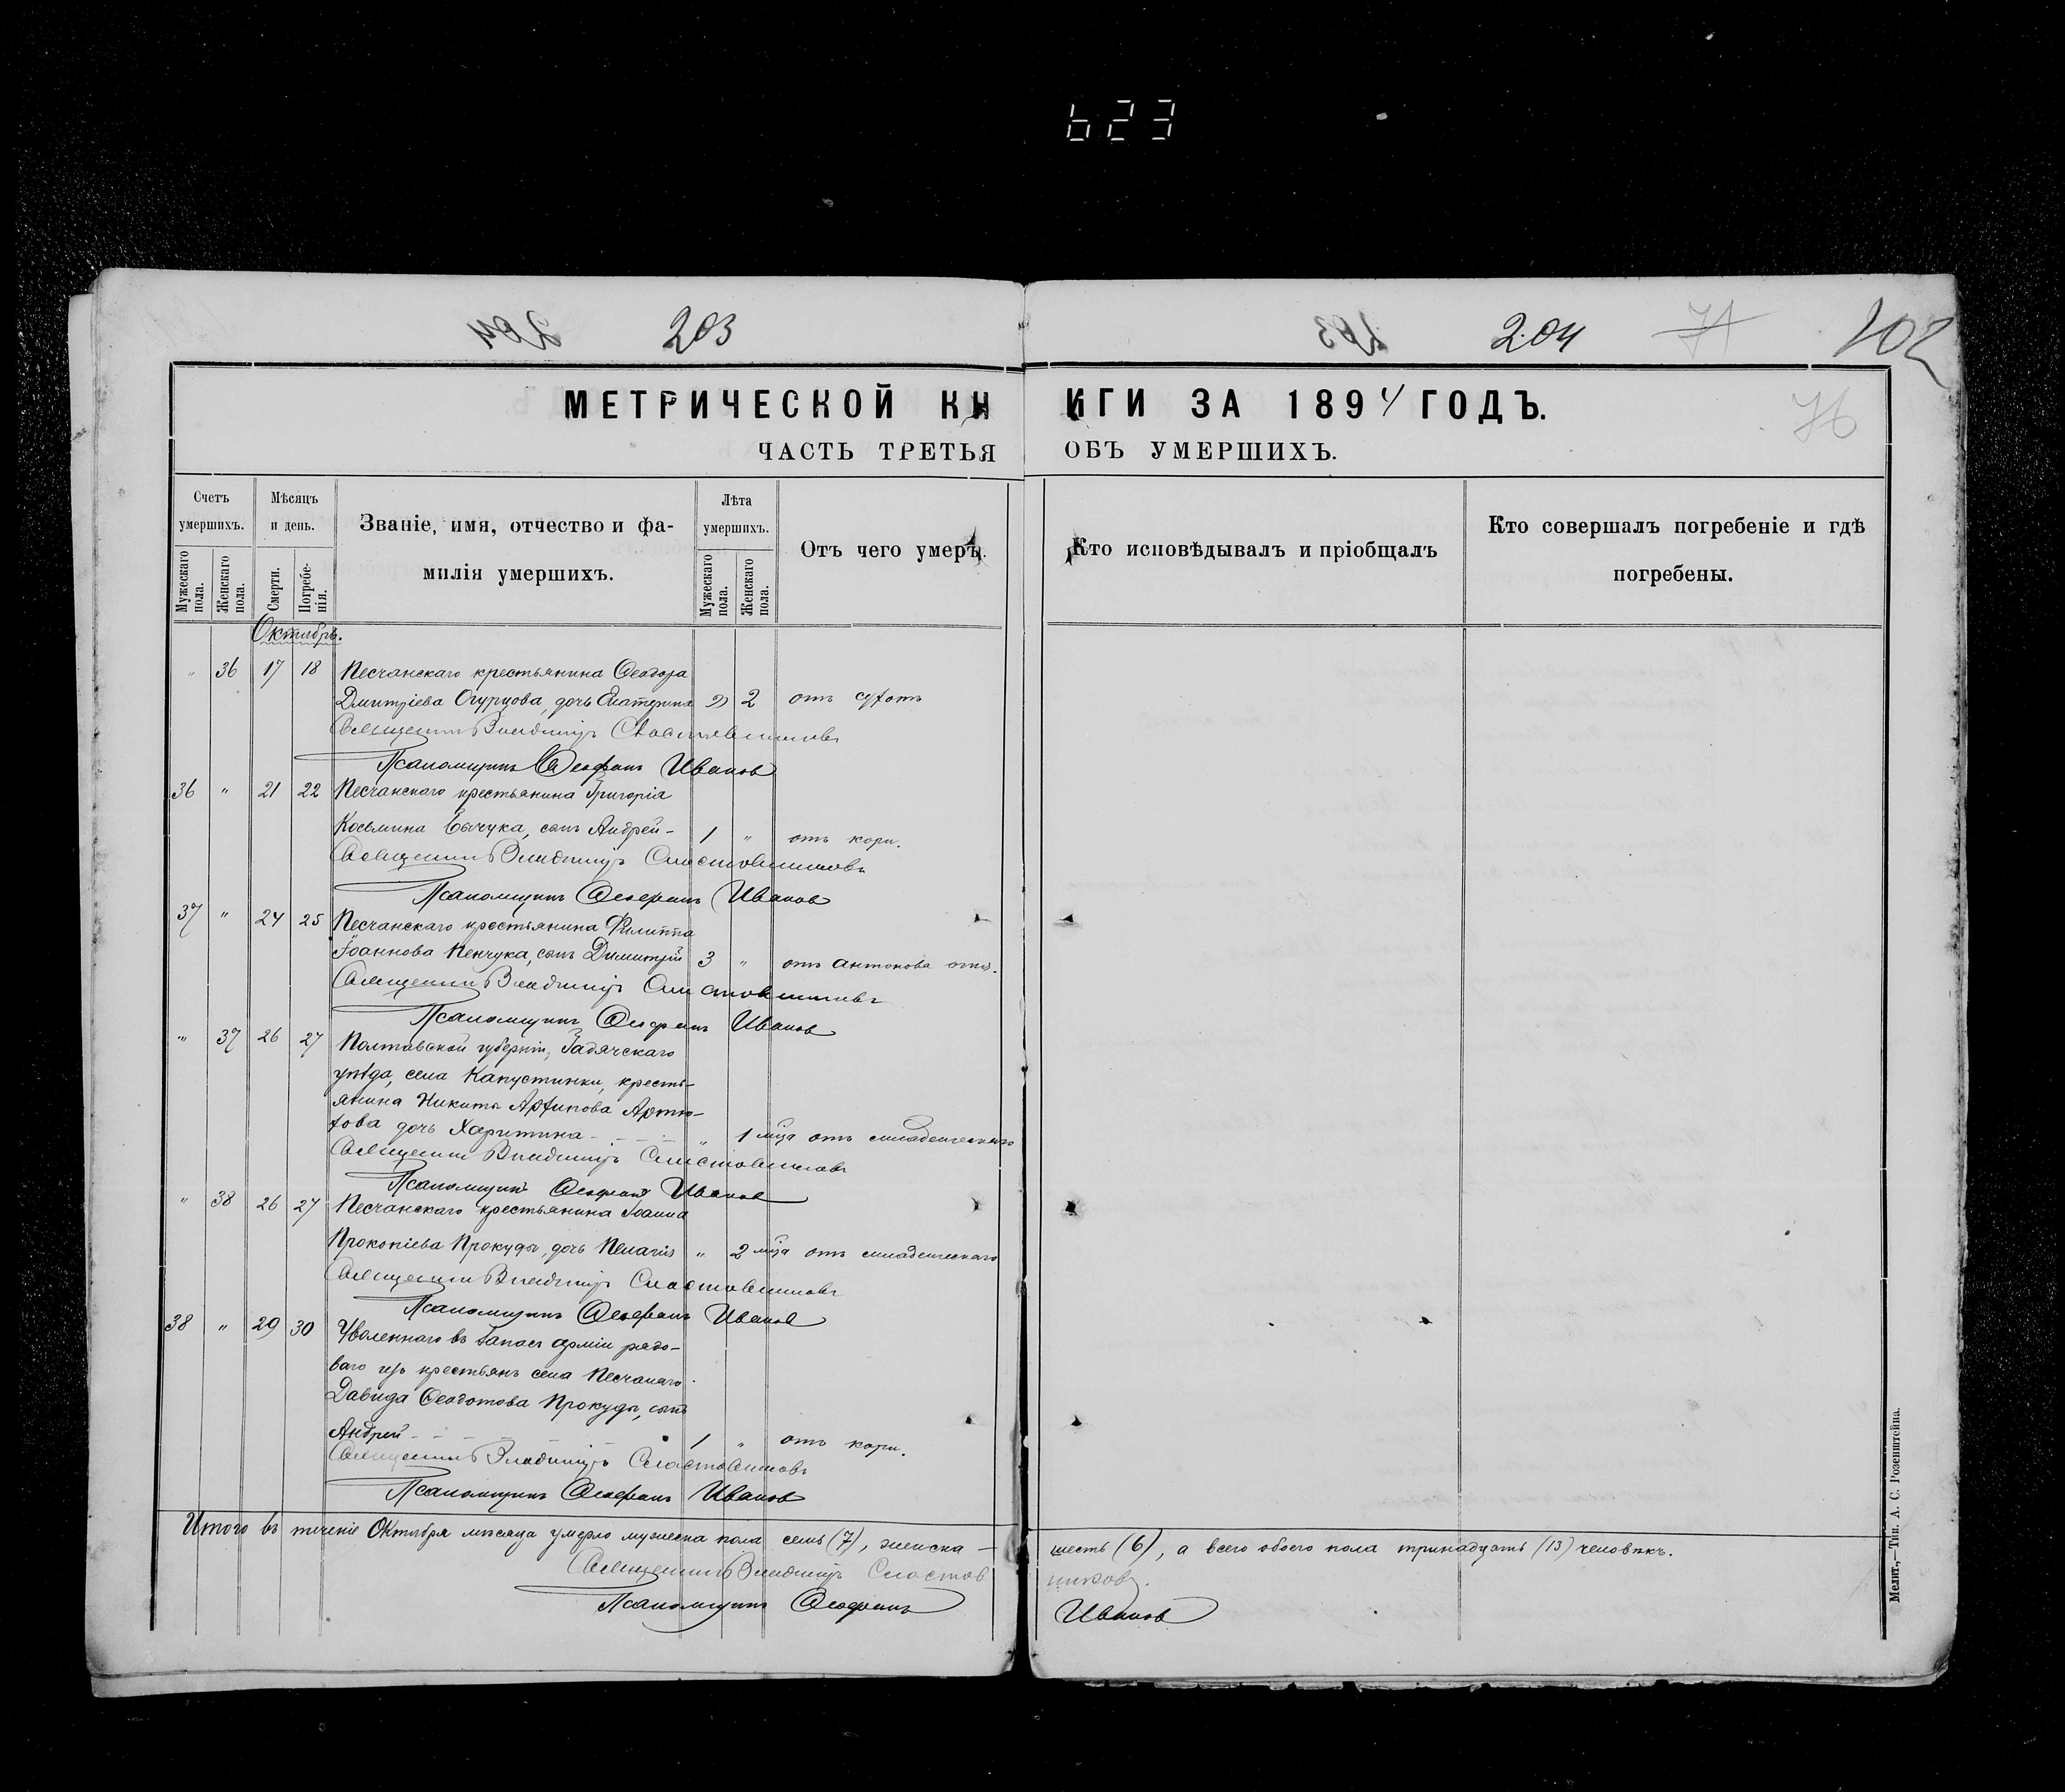 623
203
204
71
102
76
МЕТРИЧЕСКОЙ КНИГИ ЗА 1894 ГОДЪ.
ЧАСТЬ ТРЕТЬЯ ОБЪ УМЕРШИХЪ.
Счетъ умершихъ.
Мужескаго пола.
Женскаго пола.
Мѣсяцъ и день.
Смерти.
Погребенія.
Званіе, имя, отчество и фа-
милія умершихъ.
Лѣта умершихъ.
Мужескаго пола.
Женскаго пола.
Отъ чего умеръ.
Кто исповѣдывалъ и пріобщалъ
Кто совершалъ погребеніе и гдѣ
погребены.
Октябрь.
" 36 17 18 Песчанскаго крестьянина Ѳеодора
Димитріева Огурцова, дочь Екатерина " 2 отъ
Священникъ Владиміръ Сластовниковъ
Псаломщикъ Ѳеофанъ Ивановъ
36 " 21 22 Песчанскаго крестьянина Григорія
Косьмина Бычука, сынъ Андрей - 1 " отъ кори.
Священникъ Владиміръ Сластовниковъ
Псаломщикъ Ѳеофанъ Ивановъ
37 " 24 25 Песчанскаго крестьянина Филиппа
Іоаннова Пенчука, сынъ Димитрій 3 " отъ антонова огня.
Священникъ Владиміръ Сластовниковъ
Псаломщикъ Ѳеофанъ Ивановъ
" 37 26 27 Полтавской губерніи, Гадячскаго
уѣзда, села Капустинки, кресть-
янина Никиты Архипова Артю-
хова дочь Харитина - " 1 м͠ца отъ младенческаго
Священникъ Владиміръ Сластовниковъ
Псаломщикъ Ѳеофанъ Ивановъ
" 38 26 27 Песчанскаго крестьянина Іоанна
Прокопіева Прокуды, дочь Пелагія " 2 м͠ца отъ младенческаго
Священникъ Владиміръ Сластовниковъ
Псаломщикъ Ѳеофанъ Ивановъ
38 " 29 30 Уволеннаго въ запасъ арміи рядо-
ваго изъ крестьянъ села Песчанаго
Давида Ѳеодотова Прокуды, сынъ
Андрей - 1 " отъ кори.
Священникъ Владиміръ Сластовниковъ
Псаломщикъ Ѳеофанъ Ивановъ
Итого въ теченіе Октября мѣсяца умерло мужеска пола семь (7), женска - шесть (6), а всего обоего пола тринадцать (13) человѣкъ.
Священникъ Владиміръ Сластовниковъ.
Псаломщикъ Ѳеофанъ Ивановъ
Мелит.,—Тип. А. С. Розенштейна.